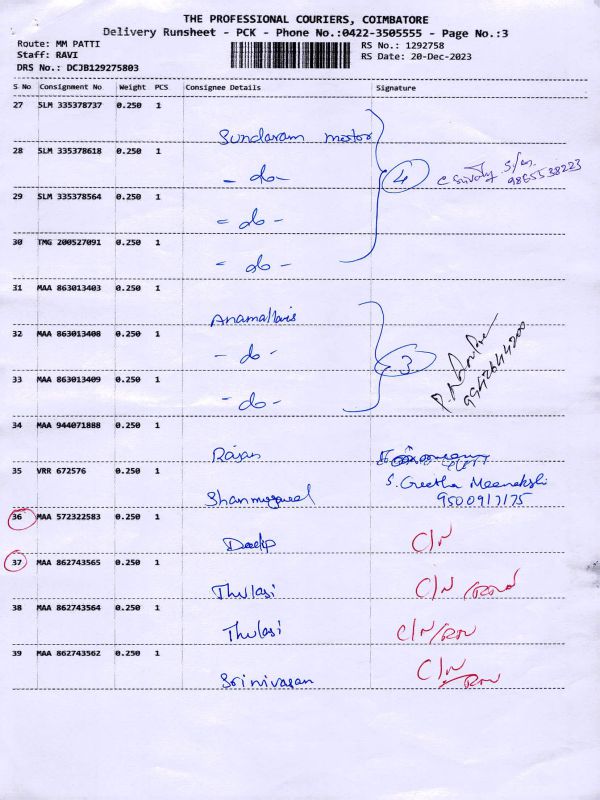 THE PROFESSIONAL COURIERS, COIMBATORE
Delivery Runsheet - PCK - Phone No.:0422-3505555 - Page No.:3
Route: MM PATTI
Staff: RAVI
DRS No.: DCJB129275803
RS No.: 1292758
RS Date: 20-Dec-2023
S No Consignment No Weight PCS Consignee Details Signature
27 SLM 335378737 0.250 1
Sundaram motor
28 SLM 335378618 0.250 1
- do -
4
9865538223
29 SLM 335378564 0.250 1
- do -
30 TMG 200527091 0.250 1
- do -
31 MAA 863013403 0.250 1
Anamallais
32 MAA 863013408 0.250 1
- do -
3
33 MAA 863013409 0.250 1
- do -
34 MAA 944071888 0.250 1
Rajan
35 VRR 672576 0.250 1
Shanmugavel
S. Geetha Meenakshi
9500917175
36 MAA 572322583 0.250 1
C/N
37 MAA 862743565 0.250 1
Thulasi C/N
38 MAA 862743564 0.250 1
Thulasi C/N/RN
39 MAA 862743562 0.250 1
Srinivasan C/N
RN